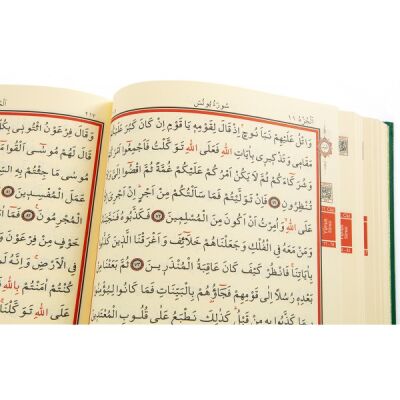 اَلْجُزْءُ ١١
سُورَةُ يُونُسَ
وَاتْلُ عَلَيْهِمْ نَبَاَ نُوحٍ اِذْ قَالَ لِقَوْمِهِ يَا قَوْمِ اِنْ كَانَ كَبُرَ عَلَيْكُمْ
مَقَامِى وَتَذْكِيرِى بِاٰيَاتِ اللّٰهِ فَعَلَى اللّٰهِ تَوَكَّلْتُ فَاَجْمِعُٓوا
وَشُرَكَٓاءَكُمْ ثُمَّ لَا يَكُنْ اَمْرُكُمْ عَلَيْكُمْ غُمَّةً ثُمَّ اقْضُٓوا
تُنْظِرُونِ ٧١ فَاِنْ تَوَلَّيْتُمْ فَمَا سَاَلْتُكُمْ مِنْ اَجْرٍ اِنْ اَجْرِىَ
عَلَى اللّٰهِ وَاُمِرْتُ اَنْ اَكُونَ مِنَ الْمُسْلِمِينَ ٧٢ فَكَذَّبُوهُ
وَمَنْ مَعَهُ فِى الْفُلْكِ وَجَعَلْنَاهُمْ خَلَٓائِفَ وَاَغْرَقْنَا الَّذِينَ
بِاٰيَاتِنَا فَانْظُرْ كَيْفَ كَانَ عَاقِبَةُ الْمُنْذَرِينَ ٧٣ ثُمَّ بَعَثْنَا
بَعْدِهِ رُسُلًا اِلٰى قَوْمِهِمْ فَجَٓاؤُهُمْ بِالْبَيِّنَاتِ فَمَا كَانُوا
بِمَا كَذَّبُوا بِهِ مِنْ قَبْلُ كَذٰلِكَ نَطْبَعُ عَلٰى قُلُوبِ الْمُعْتَدِينَ
٢١٧
وَقَالَ فِرْعَوْنُ ائْتُونِى بِكُلِّ
قَالَ لَهُمْ مُوسٰٓى
مُوسٰى مَا جِئْتُمْ بِهِ
عَمَلَ الْمُفْسِدِينَ
الْمُجْرِمُونَ فَمَٓا
خَوْفٍ مِنْ فِرْعَوْنَ
فِى الْاَرْضِ وَاِنَّهُ
كُنْتُمْ اٰمَنْتُمْ بِاللّٰهِ
عَلَى اللّٰهِ تَوَكَّلْنَا